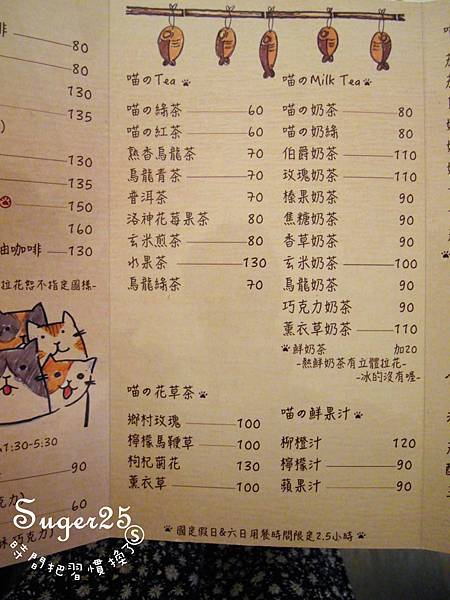 啡
80
80
130
135
130
135
150
160
油咖啡 130
拉花恕不指定圖樣-
1:30-5:30
90
60
巧克力)
喵のTea
喵の綠茶 60
喵の紅茶 60
熟香烏龍茶 70
烏龍青茶 70
普洱茶 70
洛神花莓果茶 80
玄米煎茶 80
水果茶 130
烏龍綠茶 70
喵の花草茶
鄉村玫瑰 100
檸檬馬鞭草 100
枸杞菊花 130
薰衣草 100
喵のMilk Tea
喵の奶茶 80
喵の奶綠 80
伯爵奶茶 110
玫瑰奶茶 110
榛果奶茶 90
焦糖奶茶 90
香草奶茶 90
玄米奶茶 100
烏龍奶茶 90
巧克力奶茶 90
薰衣草奶茶 110
鮮奶茶 加20
-熱鮮奶茶有立體拉花-
-冰的沒有喔-
喵の鮮果汁
柳橙汁 120
檸檬汁 90
蘋果汁 90
國定假日&六日用餐時間限定2.5小時
Suger25
時間把習慣換了
S